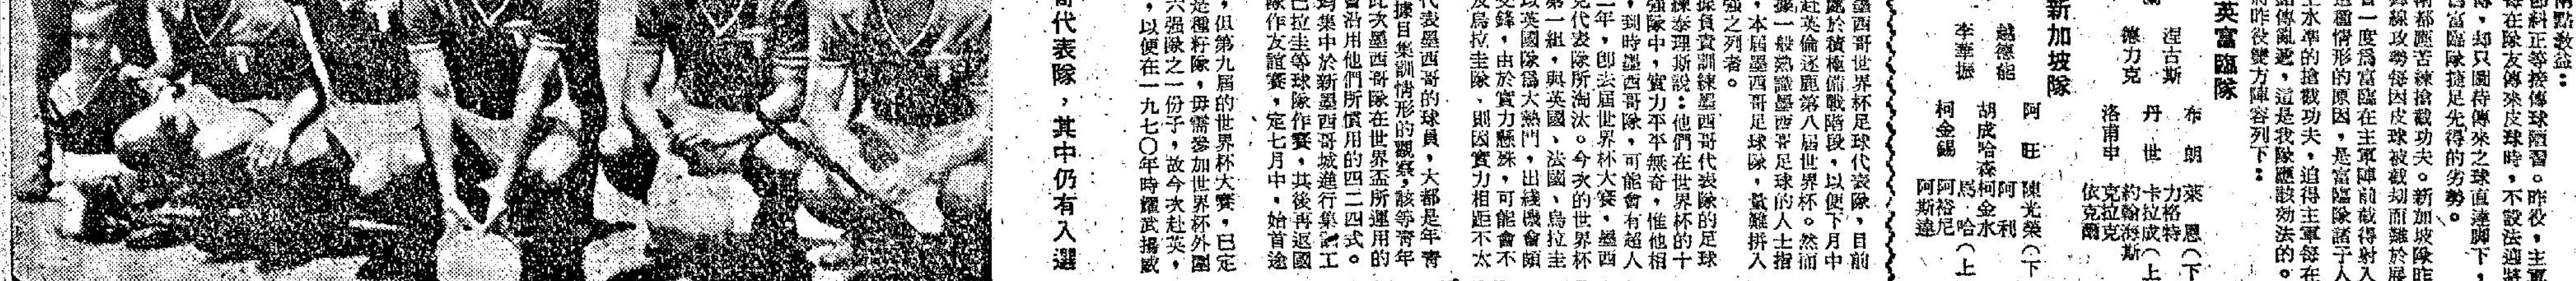 兩點教益：
節科正等接傳球陋習。昨役，主軍
每在隊友傳來皮球時，不設法適將
傳，却只圖待傳來之球直達脚下，
富臨隊捷足先得的劣勢。
兩都應苦練搶截功夫。新加坡隊昨
鋒線攻勢每因皮球被截刧而難於展
會一度為富臨在主軍陣前截得射入
這種情形的原因，是富臨隊諸子人
上水準的搶截功夫，迫得主軍每在
這是我隊應該効法的。
將昨役雙方陣容列下：
英富臨隊
布 朗 萊 恩（下
涅古斯 力格特
丹 世 卡拉成（上
德力克 約翰海斯
洛甫申 克拉克
依克爾
新加坡隊
阿 旺 陳光榮（下
越德能 阿 利
胡成哈森 柯金水
李華振 馬 哈（上
柯金錫 阿裕尼
阿斯達
墨西哥世界杯足球代表隊，目前
處於積極備戰階段，以便下月中
赴英倫逐鹿第八屆世界杯。然而
據一般熟識墨西哥足球的人士指
，本屆墨西哥足球隊，量難拼入
強之列者。
據負責訓練墨西哥代表隊的足球
練泰理斯說：他們在世界杯的十
強隊中，實力平平無奇，惟他相
，到時墨西哥隊，可能會有超人
二年，卽去屆世界杯大賽，墨西
克代表隊所淘汰。今次的世界杯
第一組，與英國、法國、烏拉圭
以英國隊為大熱門，出綫機會頗
交鋒，由於實力懸殊，可能會不
及烏拉圭隊，則因實力相距不太
代表墨西哥的球員，大都是年青
據目集訓情形的觀察，該等青年
此次墨西哥隊在世界盃所運用的
會沿用他們所慣用的四二四式。
均集中於新墨西哥城進行集訓工
巴拉圭等球隊作賽，其後再返國
隊作友誼賽，定七月中，始首途
，但第九屆的世界杯大賽，已定
是種籽隊，毋需參加世界杯外圍
六强隊之一份子，故今次赴英，
，以便在一九七〇年時耀武揚威
哥代表隊，其中仍有入選